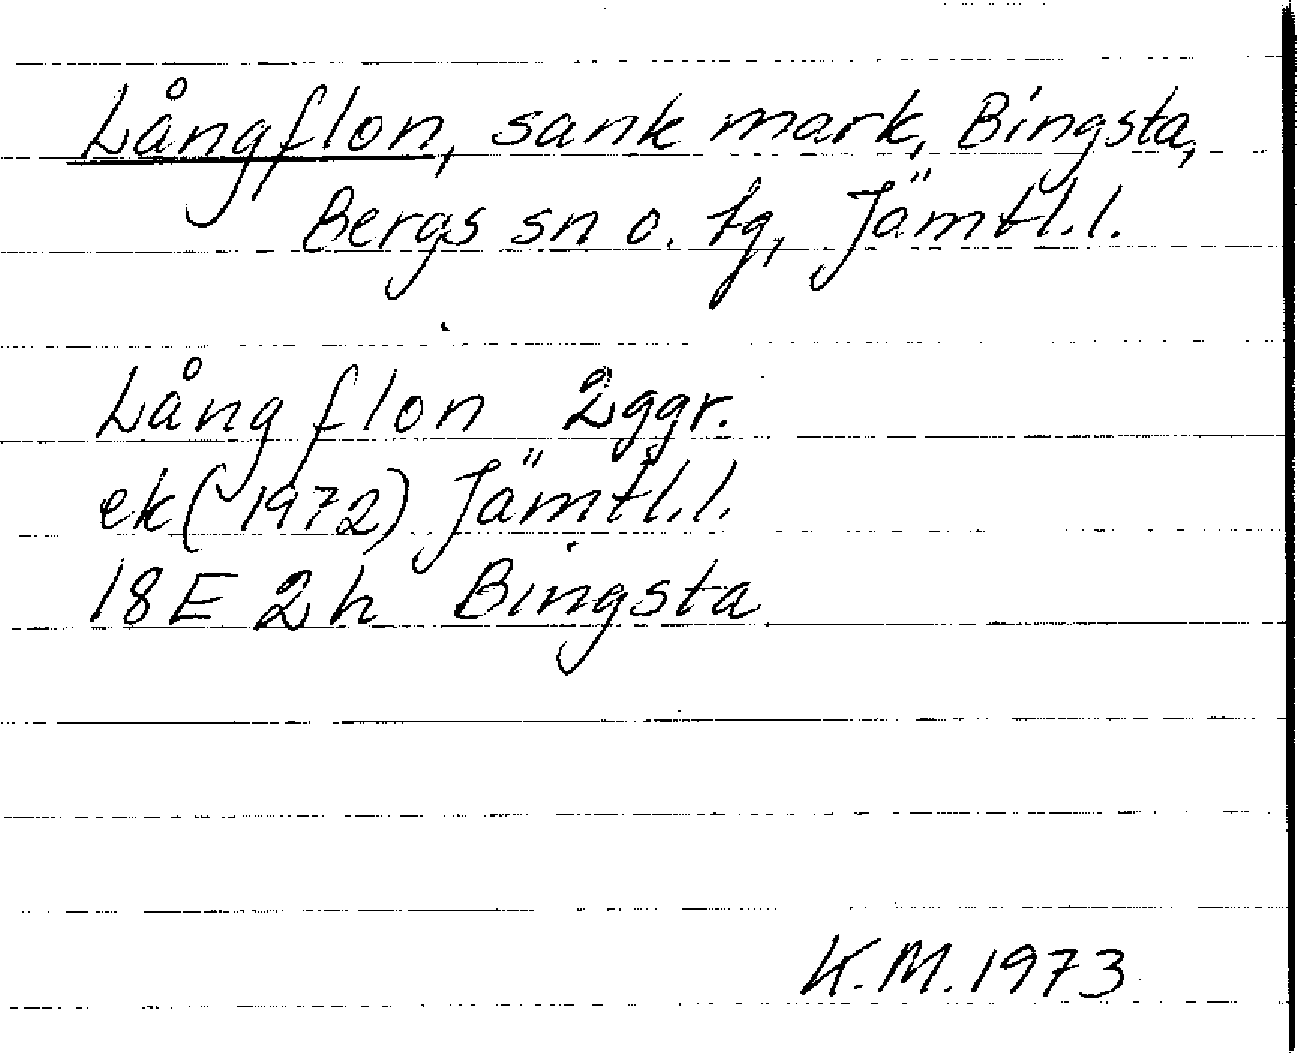 Långflon, sank mark, Bingsta,
Bergs sn o. tg, Jämtl.l.
Långflon 2ggr.
ek (1972) Jämtl.l.
18E 2h Bingsta
K.M. 1973